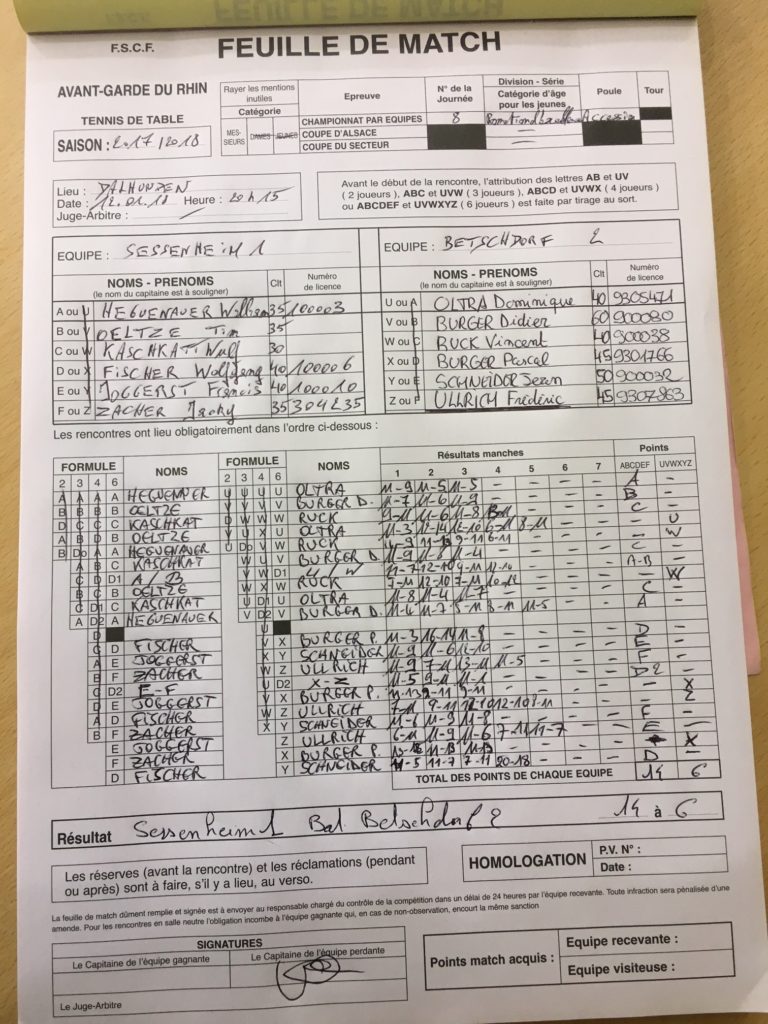 F.S.C.F.
FEUILLE DE MATCH
AVANT-GARDE DU RHIN
TENNIS DE TABLE
SAISON : 2017/2018
Rayer les mentions inutiles
Catégorie
MES-SIEURS DAMES JEUNES
Epreuve
CHAMPIONNAT PAR EQUIPES
COUPE D'ALSACE
COUPE DU SECTEUR
N° de la Journée
8
Division - Série
Catégorie d'âge pour les jeunes
Poule
Tour
Lieu : DALHUNDEN
Date : 12.01.18 Heure : 20h15
Juge-Arbitre :
Avant le début de la rencontre, l'attribution des lettres AB et UV
( 2 joueurs ), ABC et UVW ( 3 joueurs ), ABCD et UVWX ( 4 joueurs )
ou ABCDEF et UVWXYZ ( 6 joueurs ) est faite par tirage au sort.
EQUIPE : SESSENHEIM 1
NOMS - PRENOMS
(le nom du capitaine est à souligner)
Clt
Numéro de licence
A ou U HEGUENAUER William 35 100003
B ou V OELTZE Tim 35
C ou W KASCHKAT Wulf 30
D ou X FISCHER Wolfgang 40 100006
E ou Y JOGGERST Francis 40 100010
F ou Z ZACHER Jacky 35 304235
EQUIPE : BETSCHDORF 2
NOMS - PRENOMS
(le nom du capitaine est à souligner)
Clt
Numéro de licence
U ou A OLTRA Dominique 40 9305471
V ou B BURGER Didier 60 900080
W ou C RUCK Vincent 40 900038
X ou D BURGER Pascal 45 9301766
Y ou E SCHNEIDER Jean 50 900032
Z ou F ULLRICH Frédéric 45 9307863
Les rencontres ont lieu obligatoirement dans l'ordre ci-dessous :
FORMULE
2 3 4 6
NOMS
FORMULE
2 3 4 6
NOMS
Résultats manches
1 2 3 4 5 6 7
Points
ABCDEF UVWXYZ
HEGUENAUER OLTRA 11-9 11-5 11-5 A -
OELTZE BURGER D. 11-7 11-6 11-9 B -
KASCHKAT RUCK 9-11 11-6 11-8 C -
OELTZE OLTRA U
HEGUENAUER RUCK W
KASCHKAT BURGER D. 11-9 11-8 11-4 C -
A/B U/W 11-7 12-10 9-11 A-B -
OELTZE RUCK 7-11 12-10 7-11 W
KASCHKAT OLTRA 11-8 11-4 11-7 C -
HEGUENAUER BURGER D. 11-5 A -
FISCHER BURGER P. 11-3 16-14 11-8 D -
JOGGERST SCHNEIDER 11-9 11-6 12-10 E -
ZACHER ULLRICH 11-9 7-11 13-11 11-5 F -
E-F X-Z 11-5 9-11 11-1 D2 -
JOGGERST BURGER P. X
FISCHER ULLRICH Z
ZACHER SCHNEIDER 11-6 11-9 11-8 F -
JOGGERST ULLRICH 6-11 11-9 11-6 7-11 11-7 E -
ZACHER BURGER P. X
FISCHER SCHNEIDER 11-5 11-7 7-11 20-18 D -
TOTAL DES POINTS DE CHAQUE EQUIPE 14 6
Résultat Sessenheim 1 Bat. Betschdorf 2 14 à 6
Les réserves (avant la rencontre) et les réclamations (pendant
ou après) sont à faire, s'il y a lieu, au verso.
HOMOLOGATION
P.V. N° :
Date :
La feuille de match dûment remplie et signée est à envoyer au responsable chargé du contrôle de la compétition dans un délai de 24 heures par l'équipe recevante. Toute infraction sera pénalisée d'une
amende. Pour les rencontres en salle neutre l'obligation incombe à l'équipe gagnante qui, en cas de non-observation, encourt la même sanction
SIGNATURES
Le Capitaine de l'équipe gagnante
Le Capitaine de l'équipe perdante
Le Juge-Arbitre
Points match acquis :
Equipe recevante :
Equipe visiteuse :